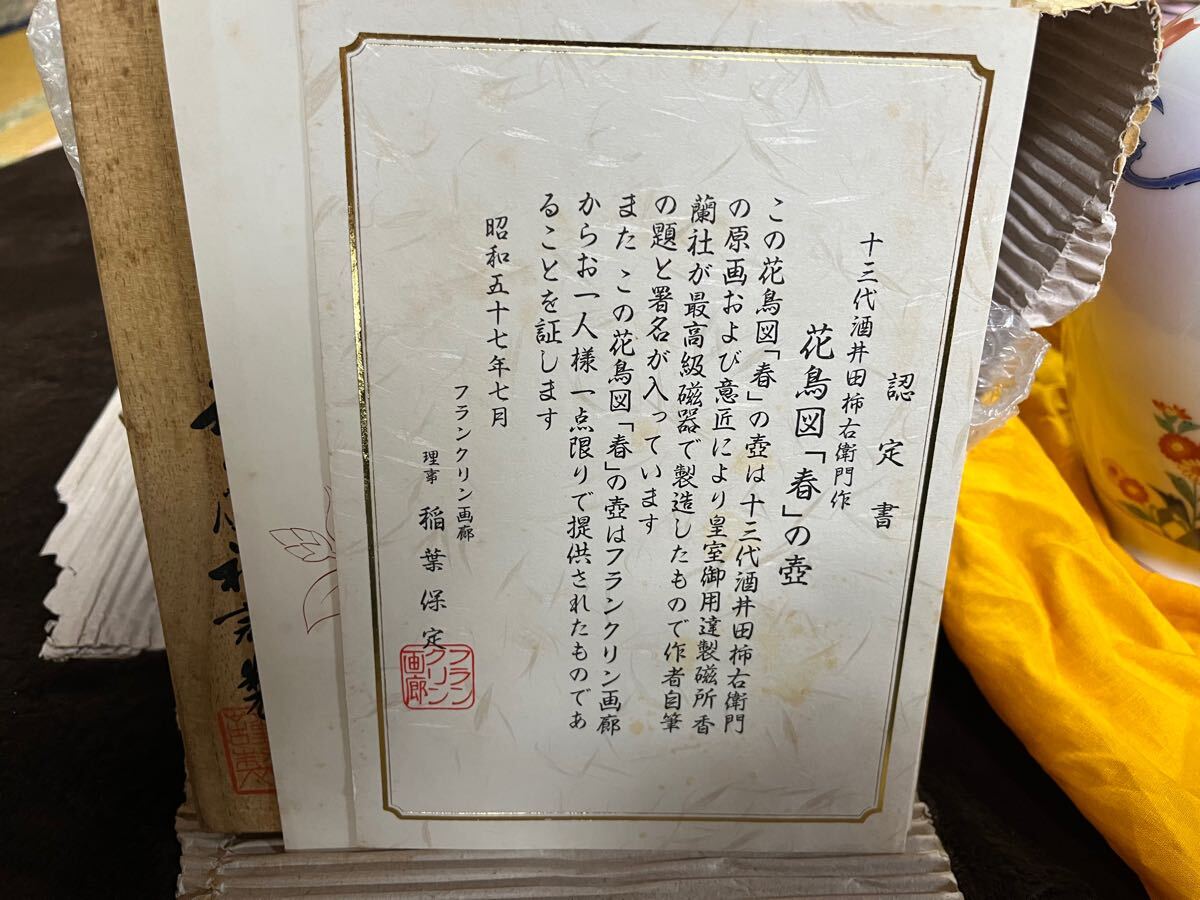 認定書
十三代酒井田柿右衛門作
花鳥図「春」の壺
この花鳥図「春」の壺は十三代酒井田柿右衛門
の原画および意匠により皇室御用達製磁所香
蘭社が最高級磁器で製造したもので作者自筆
の題と署名が入っています
また この花鳥図「春」の壺はフランクリン画廊
からお一人様一点限りで提供されたものであ
ることを証します
昭和五十七年七月
フランクリン画廊
理事 稲葉保定
フラン
クリン
画廊